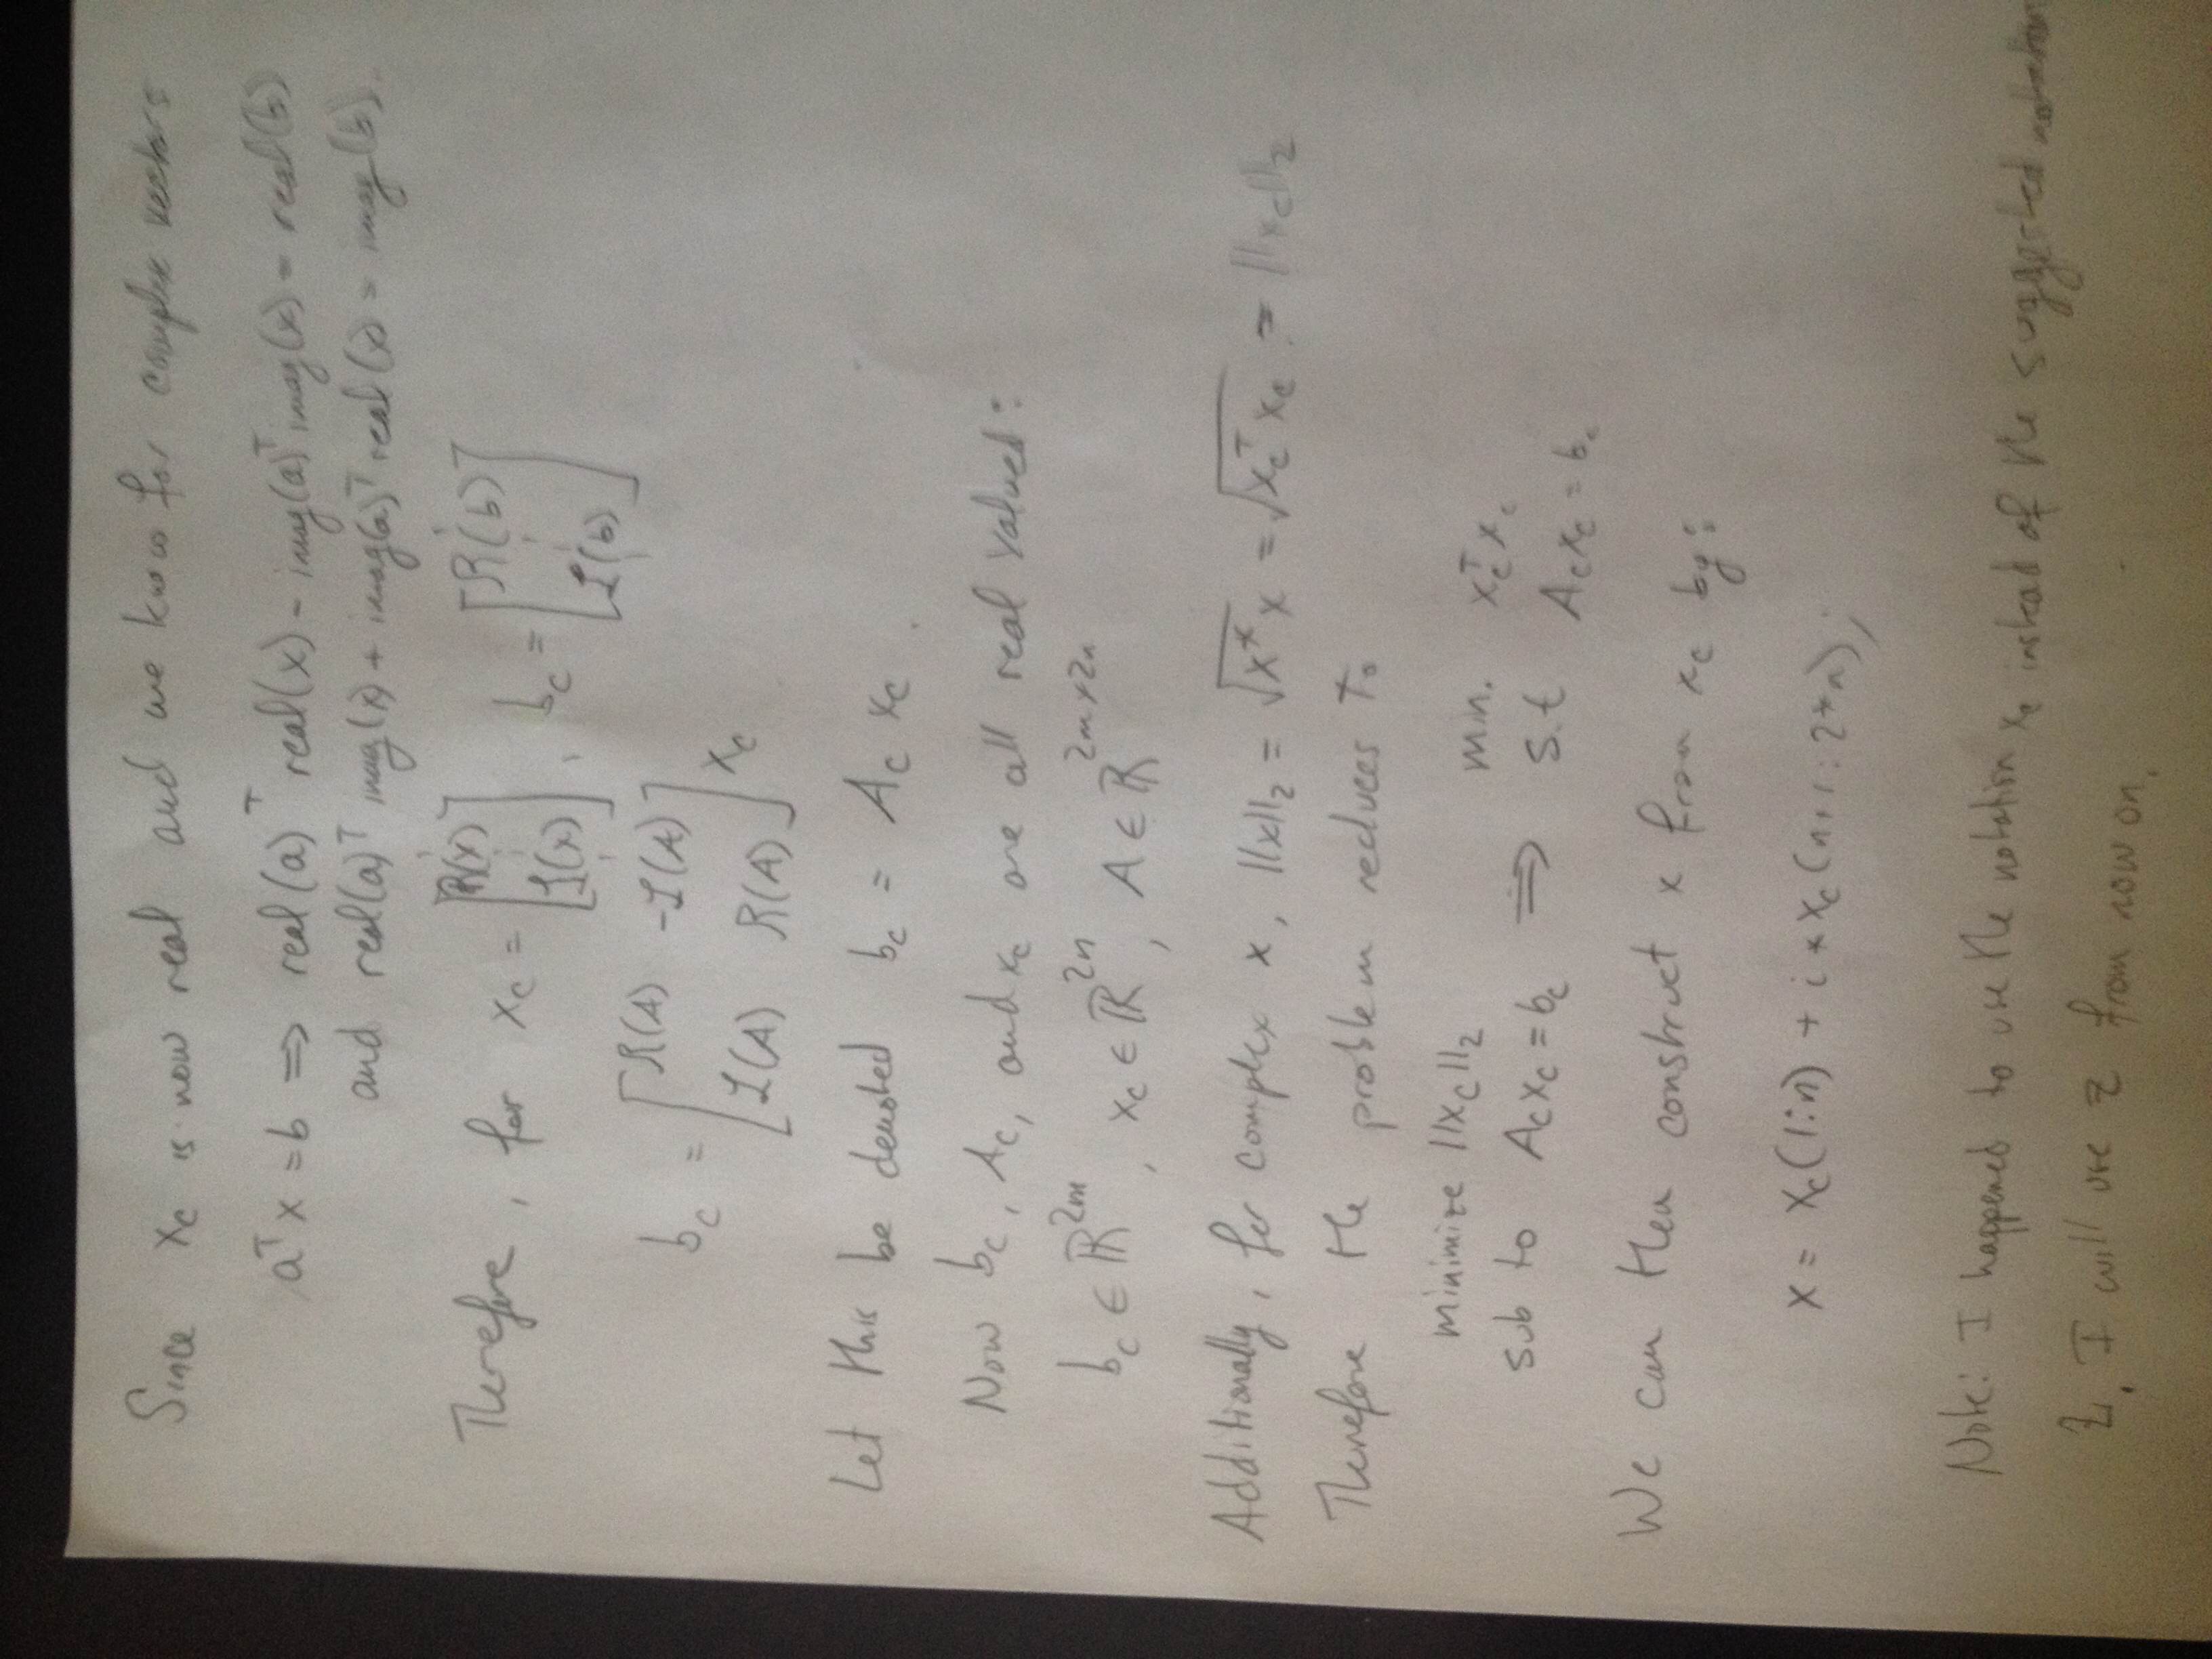 Since x_c is now real and we know for complex vectors
a^T x = b ⇒ real(a)^T real(x) - imag(a)^T imag(x) = real(b)
and real(a)^T imag(x) + imag(a)^T real(x) = imag(b).
Therefore, for x_c = [R(x) ⋮ I(x)], b_c = [R(b) ⋮ I(b)]
b_c = [R(A) -I(A)
I(A) R(A)] x_c
Let this be denoted b_c = A_c x_c.
Now b_c, A_c, and x_c are all real valued:
b_c ∈ ℝ^2m, x_c ∈ ℝ^2n, A ∈ ℝ^2m×2n
Additionally, for complex x, ||x||_2 = √(x^* x) = √(x_c^T x_c) = ||x_c||_2
Therefore the problem reduces to
minimize ||x_c||_2 min. x_c^T x_c
sub to A_c x_c = b_c ⇒ s.t A_c x_c = b_c
We can then construct x from x_c by:
x = x_c(1:n) + i*x_c(n+1:2*n);
Note: I happened to use the notation x_c instead of the suggested notation
z. I will use z from now on.